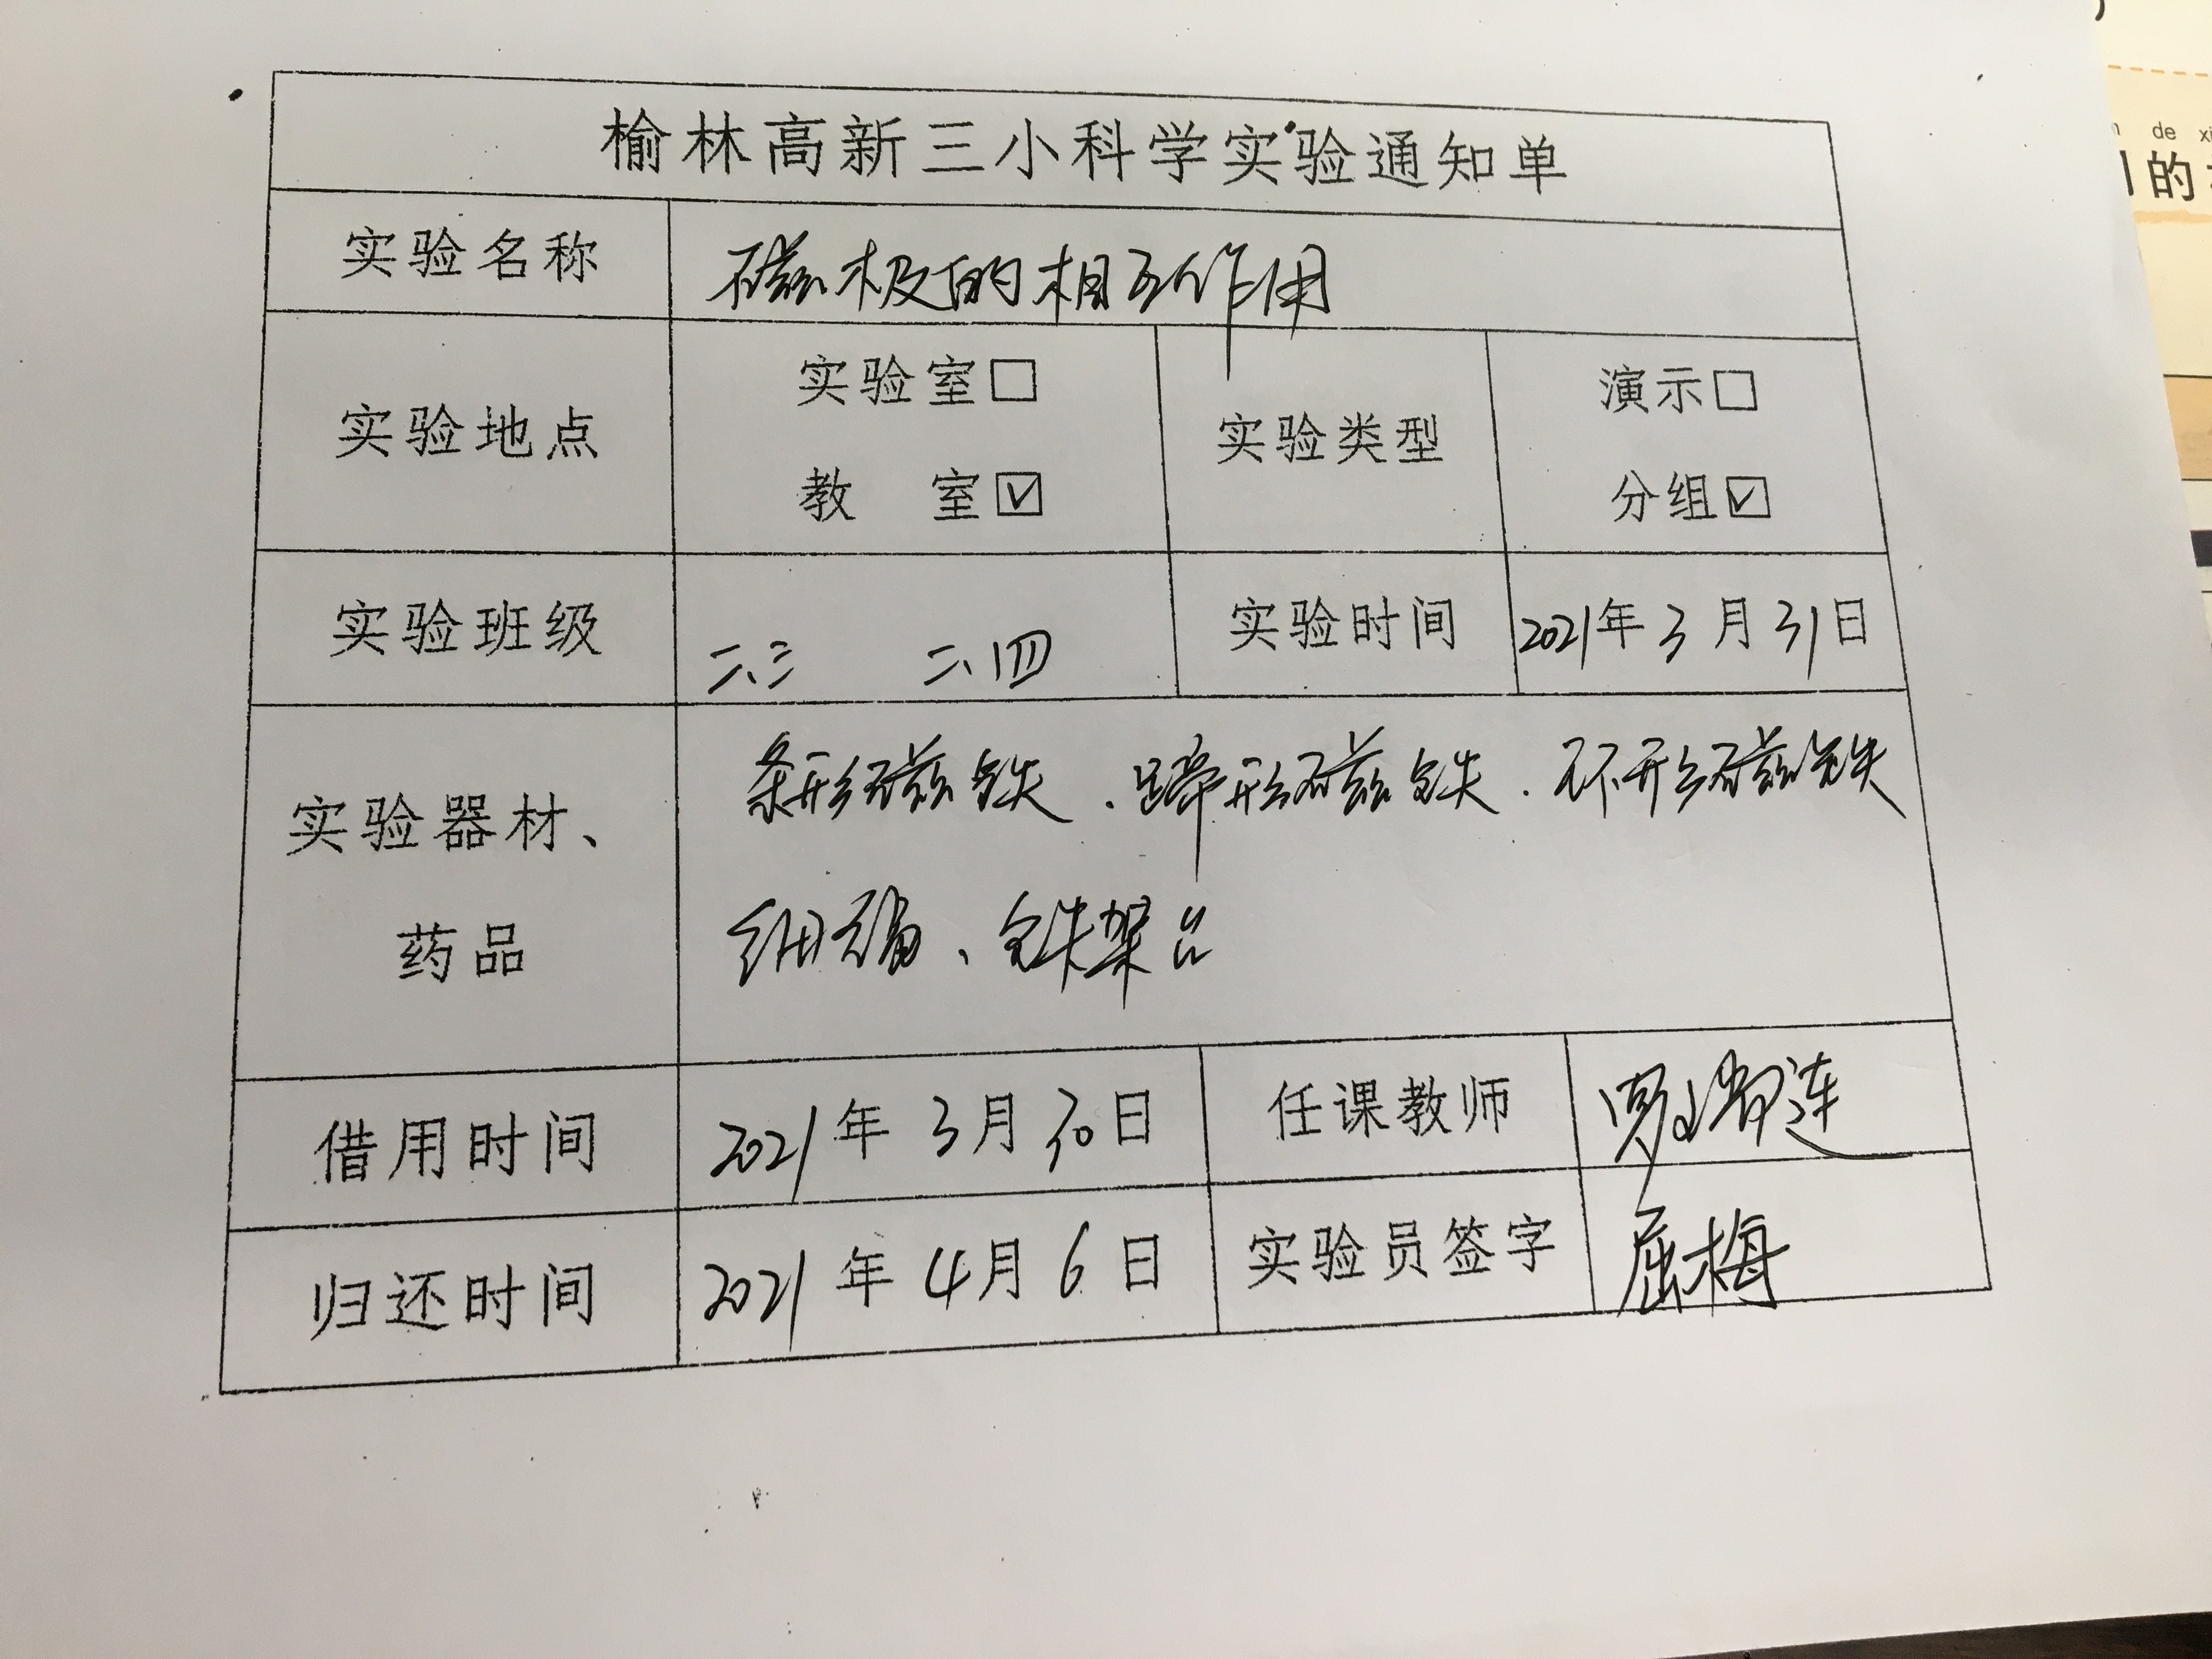 榆林高新三小科学实验通知单
实验名称 磁极的相互作用
实验地点 实验室□ 实验类型 演示□
教 室☑ 分组☑
实验班级 二、三 二、四 实验时间 2021年3月31日
实验器材、 条形磁铁、蹄形磁铁、环形磁铁
药品 细绳、铁架台
借用时间 2021年3月30日 任课教师
归还时间 2021年4月6日 实验员签字 屈梅
de
的